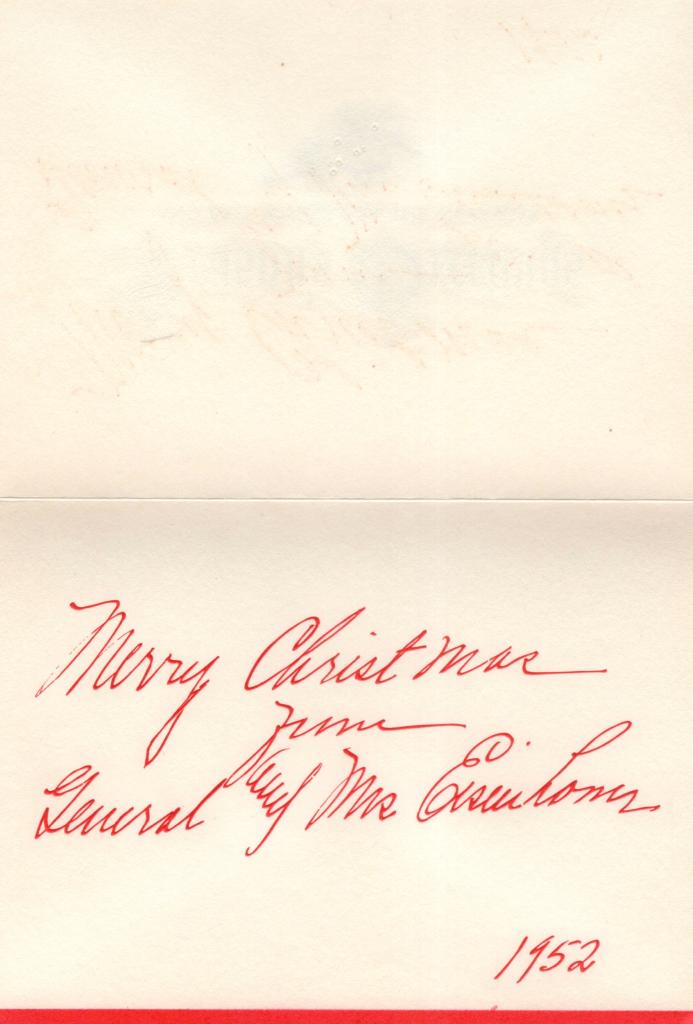 Merry Christmas
from
General and Mrs Eisenhower
1952